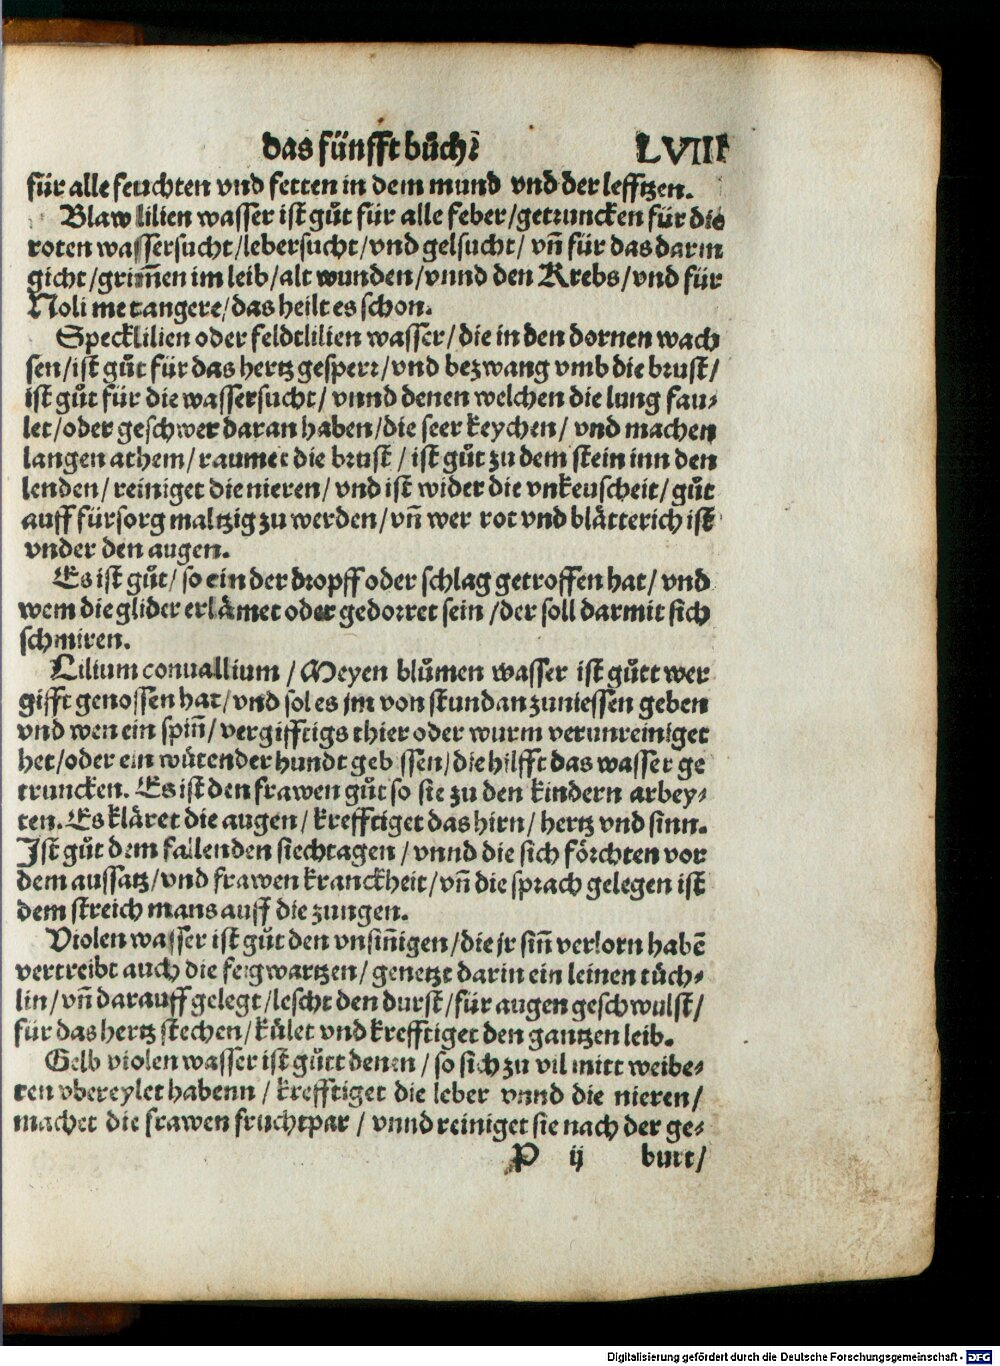 das fünfft bůch LVIII
für alle feuchten vnd fetten in dem mund vnd der lefftzen.
Blaw lilien wasser ist gůt für alle feber/getruncken für die
roten wassersucht/lebersucht/vnd gelsucht/ vñ für das darm
gicht/grim̃en im leib/alt wunden/vnnd den Krebs/vnd für
Noli me tangere/das heilt es schon.
Specklilien oder feldtlilien wasser/die in den dornen wach
sen/ist gůt für das hertz gesperr/vnd bezwang vmb die brust/
ist gůt für die wassersucht/ vnnd denen welchen die lung fau⸗
let/oder geschwer daran haben/die seer keychen/ vnd machen
langen athem/raumet die brust/ist gůt zu dem stein inn den
lenden/reiniget die nieren/vnd ist wider die vnkeuscheit/gůt
auff fürsorg maltzig zu werden/vñ wer rot vnd blätterich ist
vnder den augen.
Es ist gůt/ so ein der dropff oder schlag getroffen hat/ vnd
wem die glider erlämet oder gedorret sein/der soll darmit sich
schmiren.
Lilium conuallium/Meyen blůmen wasser ist gůtt wer
gifft genossen hat/vnd sol es jm von stund an zuniessen geben
vnd wen ein spiñ/vergifftigs thier oder wurm verunreiniget
het/oder ein wütender hundt gebissen/die hilfft das wasser ge
truncken. Es ist den frawen gůt so sie zu den kindern arbey⸗
ten. Es kläret die augen/krefftiget das hirn/hertz vnd sinn.
Ist gůt dem fallenden siechtagen/vnnd die sich förchten vor
dem aussatz/vnd frawen kranckheit/vñ die sprach gelegen ist
dem streich mans auff die zungen.
Violen wasser ist gůt den vnsiñigen/die jr siñ verlorn habẽ
vertreibt auch die feigwartzen/genetzt darin ein leinen tüch⸗
lin/vñ darauff gelegt/lescht den durst/für augen geschwulst/
für das hertz stechen/kůlet vnd krefftiget den gantzen leib.
Gelb violen wasser ist gůtt denen/so sich zu vil mitt weibe⸗
ren vbereylet habenn/krefftiget die leber vnnd die nieren/
machet die frawen fruchtpar/vnnd reiniget sie nach der ge⸗
P ij burt/
Digitalisierung gefördert durch die Deutsche Forschungsgemeinschaft - DFG